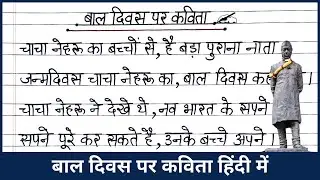 बाल दिवस पर कविता
चाचा नेहरू का बच्चों से, है बड़ा पुराना नाता
जन्मदिवस चाचा नेहरू का, बाल दिवस
चाचा नेहरू ने देखे थे, नव भारत के सपने
सपने पूरे कर सकते है, उनके बच्चे अपने।
बाल दिवस पर कविता हिंदी में